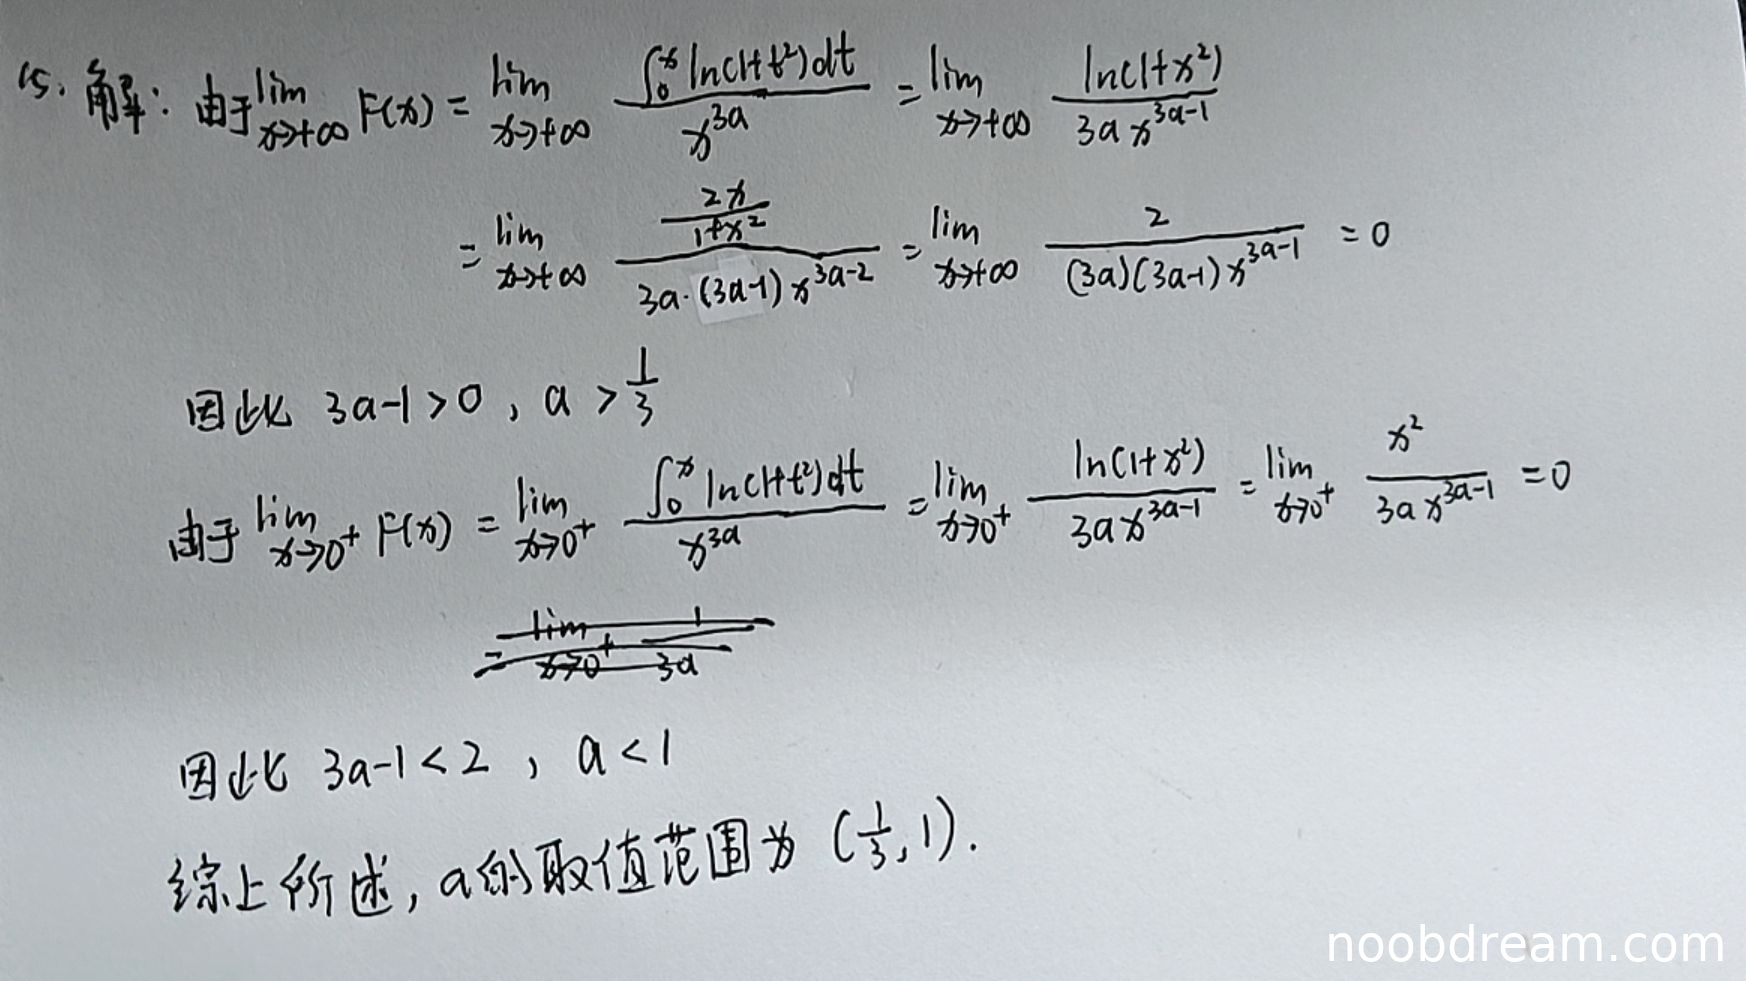 15. 解: 由于 lim_{x→+∞} F(x) = lim_{x→+∞} \frac{∫_0^x ln(1+t²)dt}{x^{3a}} = lim_{x→+∞} \frac{ln(1+x²)}{3a x^{3a-1}}
= lim_{x→+∞} \frac{\frac{2x}{1+x²}}{3a·(3a-1)x^{3a-2}} = lim_{x→+∞} \frac{2}{(3a)(3a-1)x^{3a-1}} = 0
因此 3a-1>0, a > \frac{1}{3}
由于 lim_{x→0⁺} F(x) = lim_{x→0⁺} \frac{∫_0^x ln(1+t²)dt}{x^{3a}} = lim_{x→0⁺} \frac{ln(1+x²)}{3a x^{3a-1}} = lim_{x→0⁺} \frac{x²}{3a x^{3a-1}} = 0
= lim_{x→0⁺} \frac{1}{3a}
因此 3a-1<2, a<1
综上所述, a的取值范围为 (\frac{1}{3}, 1).
noobdream.com